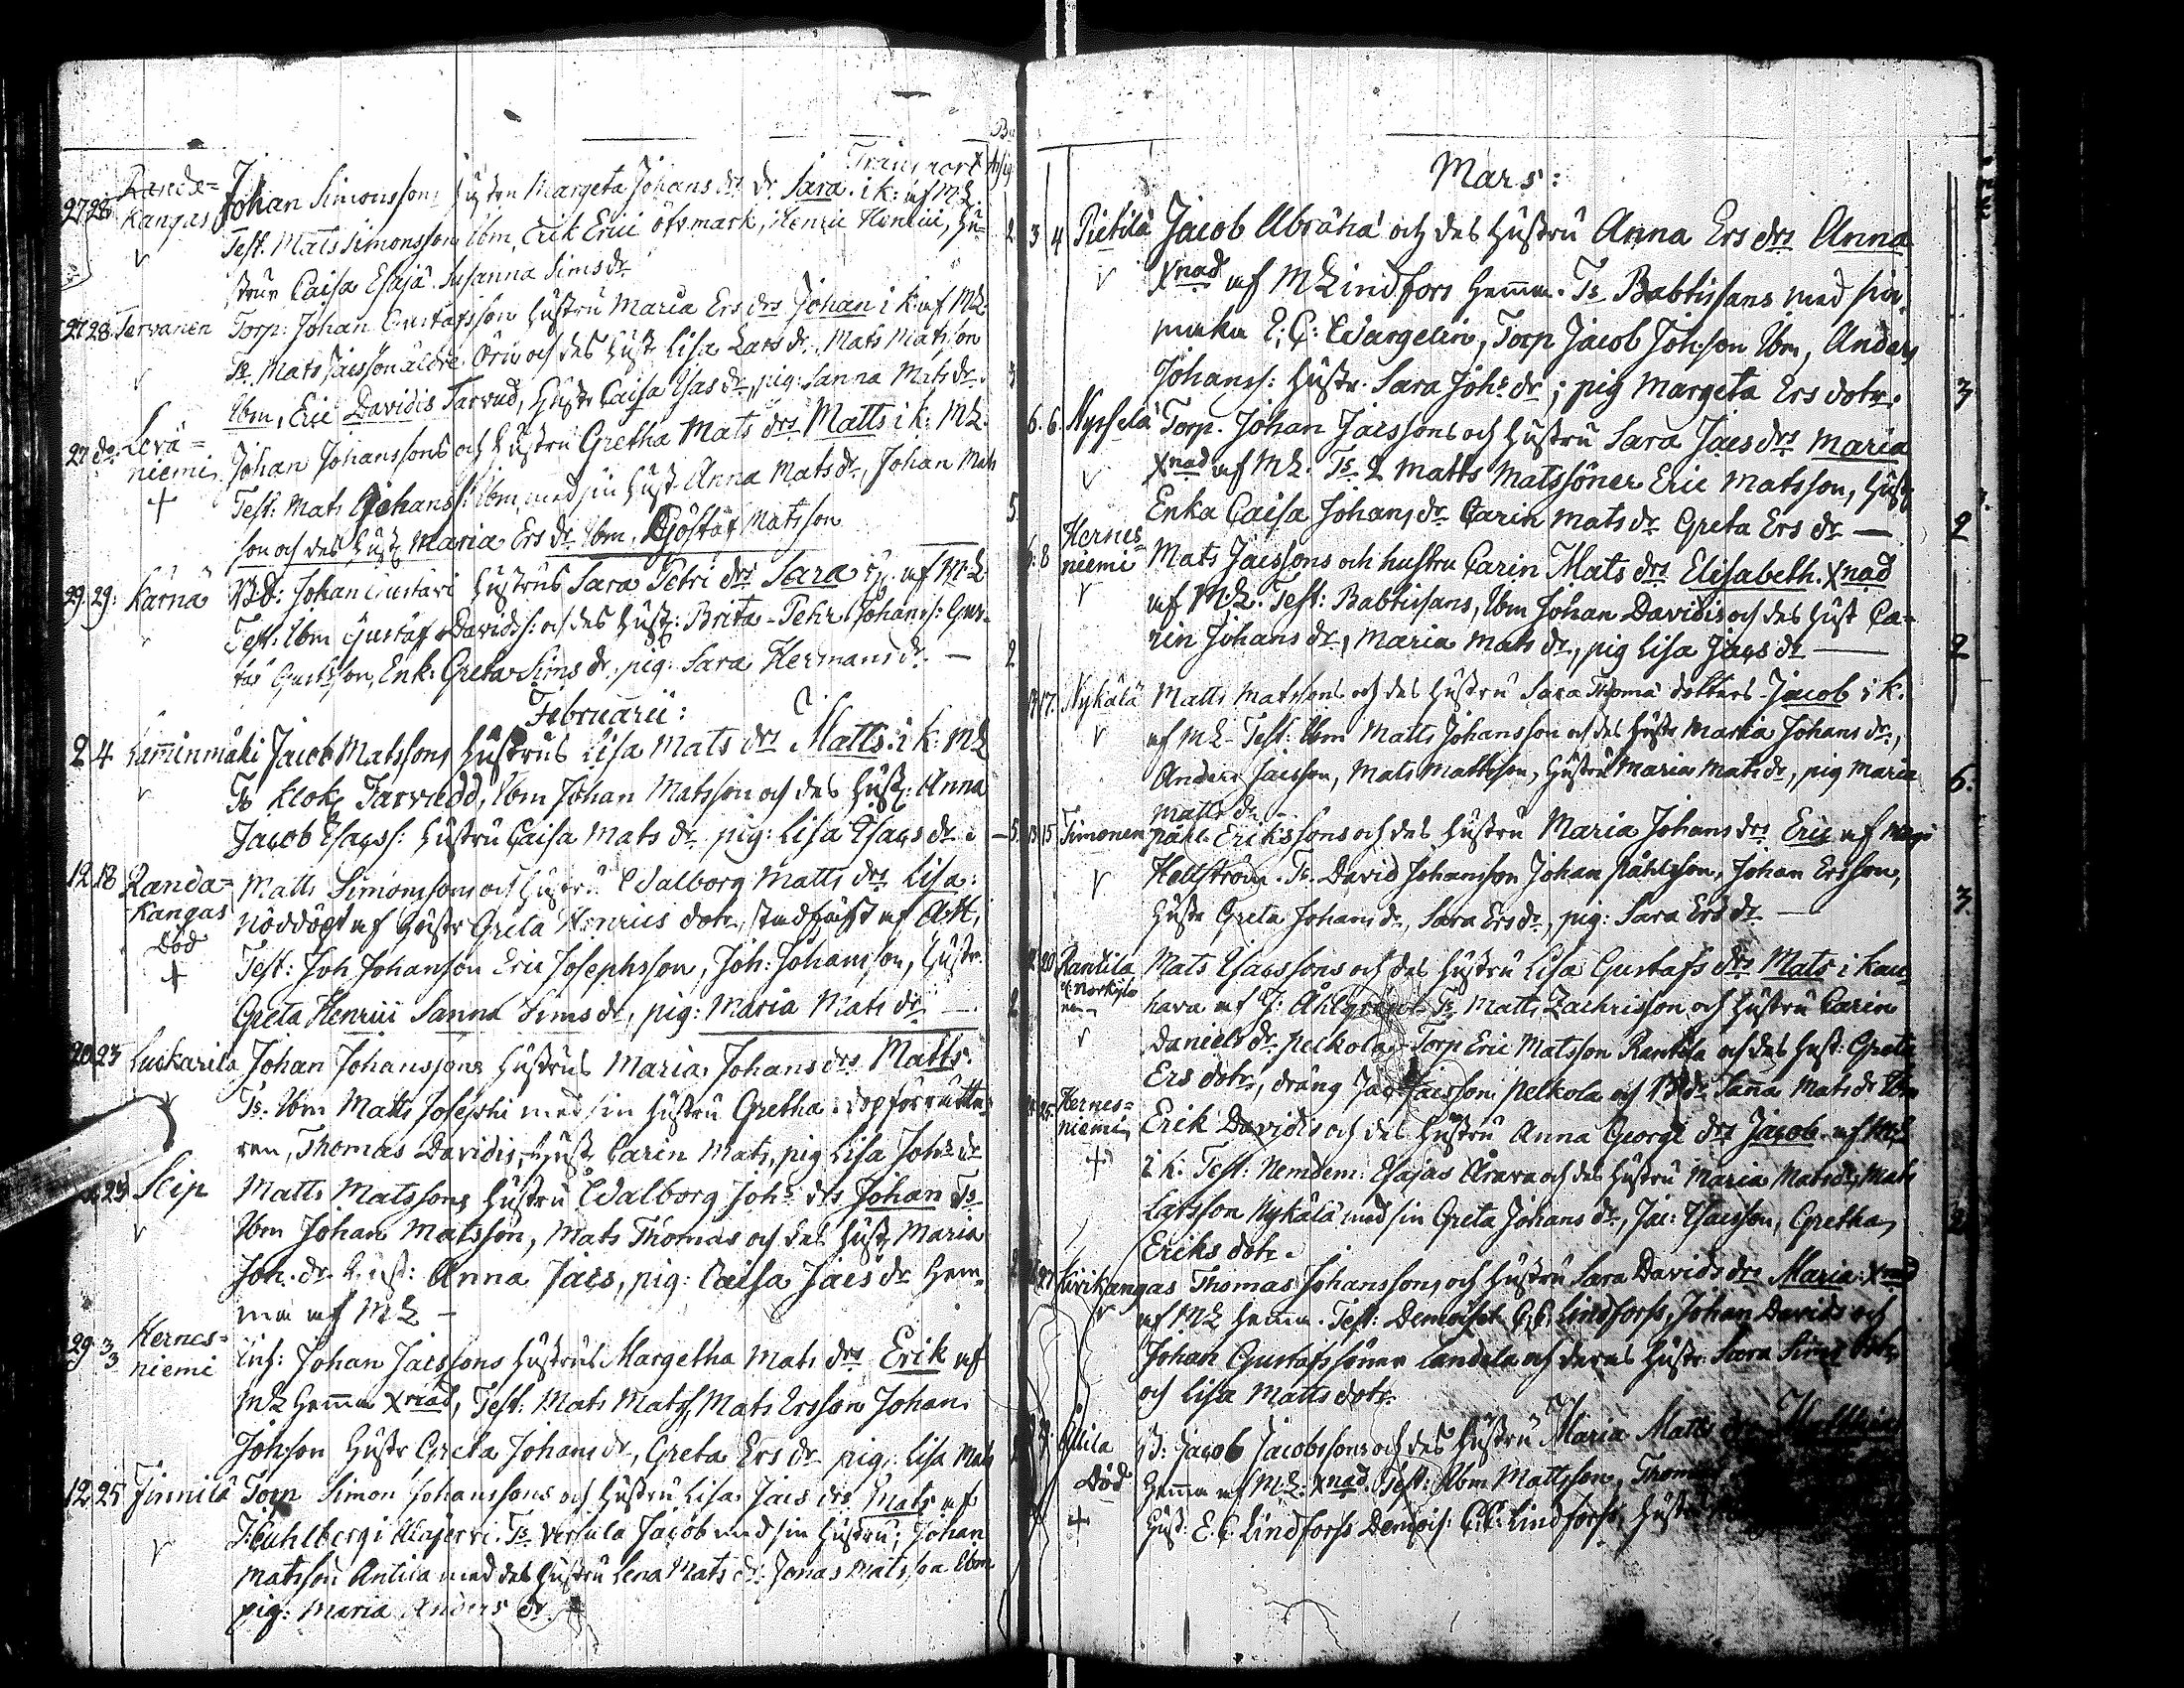 Transport
27 28 Randa=
kangas
Johan Simonssons hustru Margeta Johans dr dr Sara. i k: af ML
Test. Mats Simonsson Ibm, Erik Erici öfvmark, Henric Henrici, Hu-
strur Caisa Esajæ Susanna Sims dr 2
27 28 Tervanen Torp: Johan Gustafsson hustru Maria Ers drs Johan i k: af ML
Ts. Mats Jacsson äldre och des hust Lisa Lars dr, Mats Matsson
Ibm, Eric Davidis Tarvud, hustr Caisa Isas dr, pig: Sanna Mats dr 3
27 do: Levä=
niemi
Johan Johanssons och hustru Gretha Mats drs Matts i k: ML.
+ Test: Mats Johanss: Ibm, med sin hust Anna Mats dr, Johan Mats
son och des hust Maria Ers dr Ibm, Gjöstaf Matsson 5
29. 29: Karnä Johan Gustavi hustrus Sara Petri drs Sara af ML
Test: Ibm Gustaf Davids: och des hust: Brita - Pehr Johans: Gus-
taf Gustsson, Enk: Greta Sims dr. pig: Sara Hermans dr. — 2
Februarii:
2 4 Lamminmäki Jacob Matssons hustrus Lisa Mats drs Matts i k: ML
Ts Klok Tarvudd, Ibm Johan Matsson och des hust: Anna
Jacob Isacss: hustru Caisa Mats dr pig: Lisa Isacs dr. — 5.
12 18 Randa=
kangas
Död
+
Matts Simonsons och hustru Walborg Matts drs Lisa:
nöddöpt af hustr Greta Henrics dotr, stadfäst af AH,
Test: Joh Johanson Eric Josephsson, Joh: Johansson, hustr.
Greta Henrici Sanna Sims dr, pig: Maria Mats dr — 2
20 23 Luckarila Johan Johanssons hustrus Maria Johans drs Matts.
Ts. Ibm Matts Josephi med sin hustru Gretha dopförrätta-
ren, Thomas Davidis, hust Carin Mats, pig Lisa Johs dr
23 Seip Matts Matssons hustru Walborg Johs drs Johan Ts
Ibm Johan Matsson, Mats Thomas och des hust Maria
Joh. dr. Anna Jacs, pig: Caisa Jacs dr Hem-
ma af ML —
29 3/3 Hernes=
niemi
Inh: Johan Jacssons hustrus Margetha Mats drs Erik af
ML hemma Xnad, Test: Mats Mats, Mats Ersson Johan
Johsson hustr Greta Johans dr, Greta Ers dr pig: Lisa Mats
12 25 Finnilä Torp Simon Johanssons och hustru Lisa Jacs drs Mats af
J: Cuhlberg i Alajervi. Ts. Versula Jacob med sin hustru; Johan
Matsson Antila med des hustru Lena Mats dr. Jonas Matsson Ibm
pig: Maria Anders dr.
Mars:
3 4 Pietilä Jacob Abrahā och des hustru Anna Ers drs Anna
Xnad af M Lindfors hemma. Ts. Babtissans med sin
maka E: C: Wargelin, Torp Jacob Johsson Ibm, Anders
Johanss: hustr. Sara Johs dr; pig Margeta Ers dotr. 3
6. 6. Nysselä Torp. Johan Jacssons och hustru Sara Jacs drs Maria
Xnad af ML. Ts. 2 Matts Matssöner Eric Matsson, hust
Enka Caisa Johans dr Carin Mats dr Greta Ers dr — 2
6: 8 Hernes=
niemi
Mats Jacssons och hustru Carin Mats drs Elisabeth. Xnad
af ML. Test: Babtissans, Ibm Johan Davidis och des hust Ca-
rin Johans dr, Maria Mats dr, pig Lisa Jacs dr — 2
17. Nykälä Matts Matssons och des hustru Sara Thomæ dotters Jacob i k.
af ML - Test: Ibm Matts Johansson och des hustr Maria Johans dr,
Anders Jacsson, Mats Mattsson, hustru Maria Mats dr, pig Maria
Matts dr. 6.
13 15 Timonen Påhl Erikssons och des hustru Maria Johans drs Eric af
Hellström. Ts. David Johansson Johan Påhlsson, Johan Ersson,
hustr Greta Johans dr, Sara Ers dr, pig: Sara Ers dr — 3.
20 Rantila
Mats Isacssons och des hustru Lisa Gustafs drs Mats i kau
hava af J: Ahlgrens Ts Matts Zachrisson och hustru Carin
Daniels dr Pelkola - Torp Eric Matsson Rantila och des hust: Greta
Ers dotr, dräng Jac Jacsson Pelkola och Sanna Mats dr Ibm
25 Hernes=
niemi
+
Erik Davidis och des hustru Anna Georgi drs Jacob af ML
i k: Test: Nemdem: Esajas Årava och des hustru Maria Mats dr, Mats
Larsson Nykälä med sin Greta Johans dr, Jac: Isacsson, Gretha
Eriks dotr. 2
27 Kivikangas Thomas Johanssons och hustru Sara Davids drs Maria: Xnad
af ML hemma. Test: Demoisel C.C. Lindforss, Johan Davids och
Johan Gustafssöner Landala och deras hustr: Sara Sims dotr
och Lisa Matts dotr.
Allila
Död
+
B: Jacob Jacobssons och des hustru Maria Matts drs
hemma af ML. Xnad. Test: Ibm Mattsson, Thomas
hust: E. C. Lindforss Demois: C.C: Lindforss, hustr